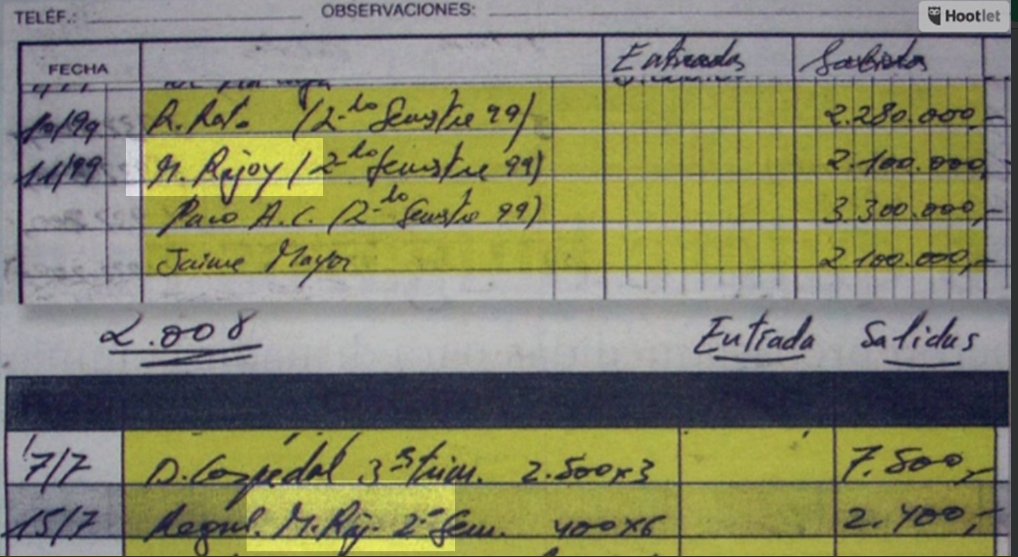 TELÉF.: OBSERVACIONES: Hootlet
FECHA Entradas Salidas
10/99 R. Rato (2-do Semestre 99) 2.280.000,-
11/99 M. Rajoy (2-do Semestre 99) 2.100.000,-
Paco A.C. (2-do Semestre 99) 3.300.000,-
Jaime Mayor 2.100.000,-
2.008 Entrada Salidas
7/7 D. Cospedal 3er trim. 2.500x3 7.500,-
15/7 M. Raj. 2º Sem. 400x6 2.400,-